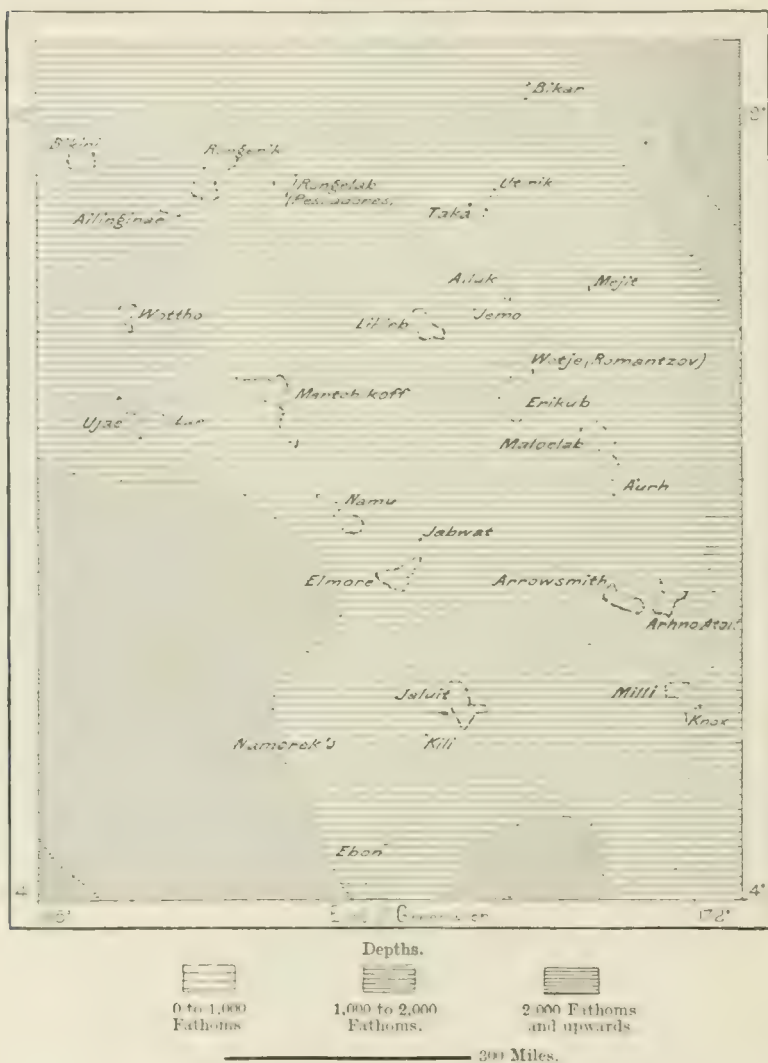 Bikar
Bikini
Rongerik
Rongelab
(Pescadores.
Utirik
Taka
Ailinginae
Ailuk
Mejit
Wottho
Likieb
Jemo
Wotje (Romantzov)
Mentchikoff
Erikub
Ujae
Lae
Maloelab
Aurh
Namu
Jabwat
Elmore
Arrowsmith
Arhno Atoll
Jaluit
Milli
Knox
Namorek's
Kili
Ebon
4
4°
East Greenwich
172°
Depths.
0 to 1,000
Fathoms
1,000 to 2,000
Fathoms.
2 000 Fathoms
and upwards
300 Miles.